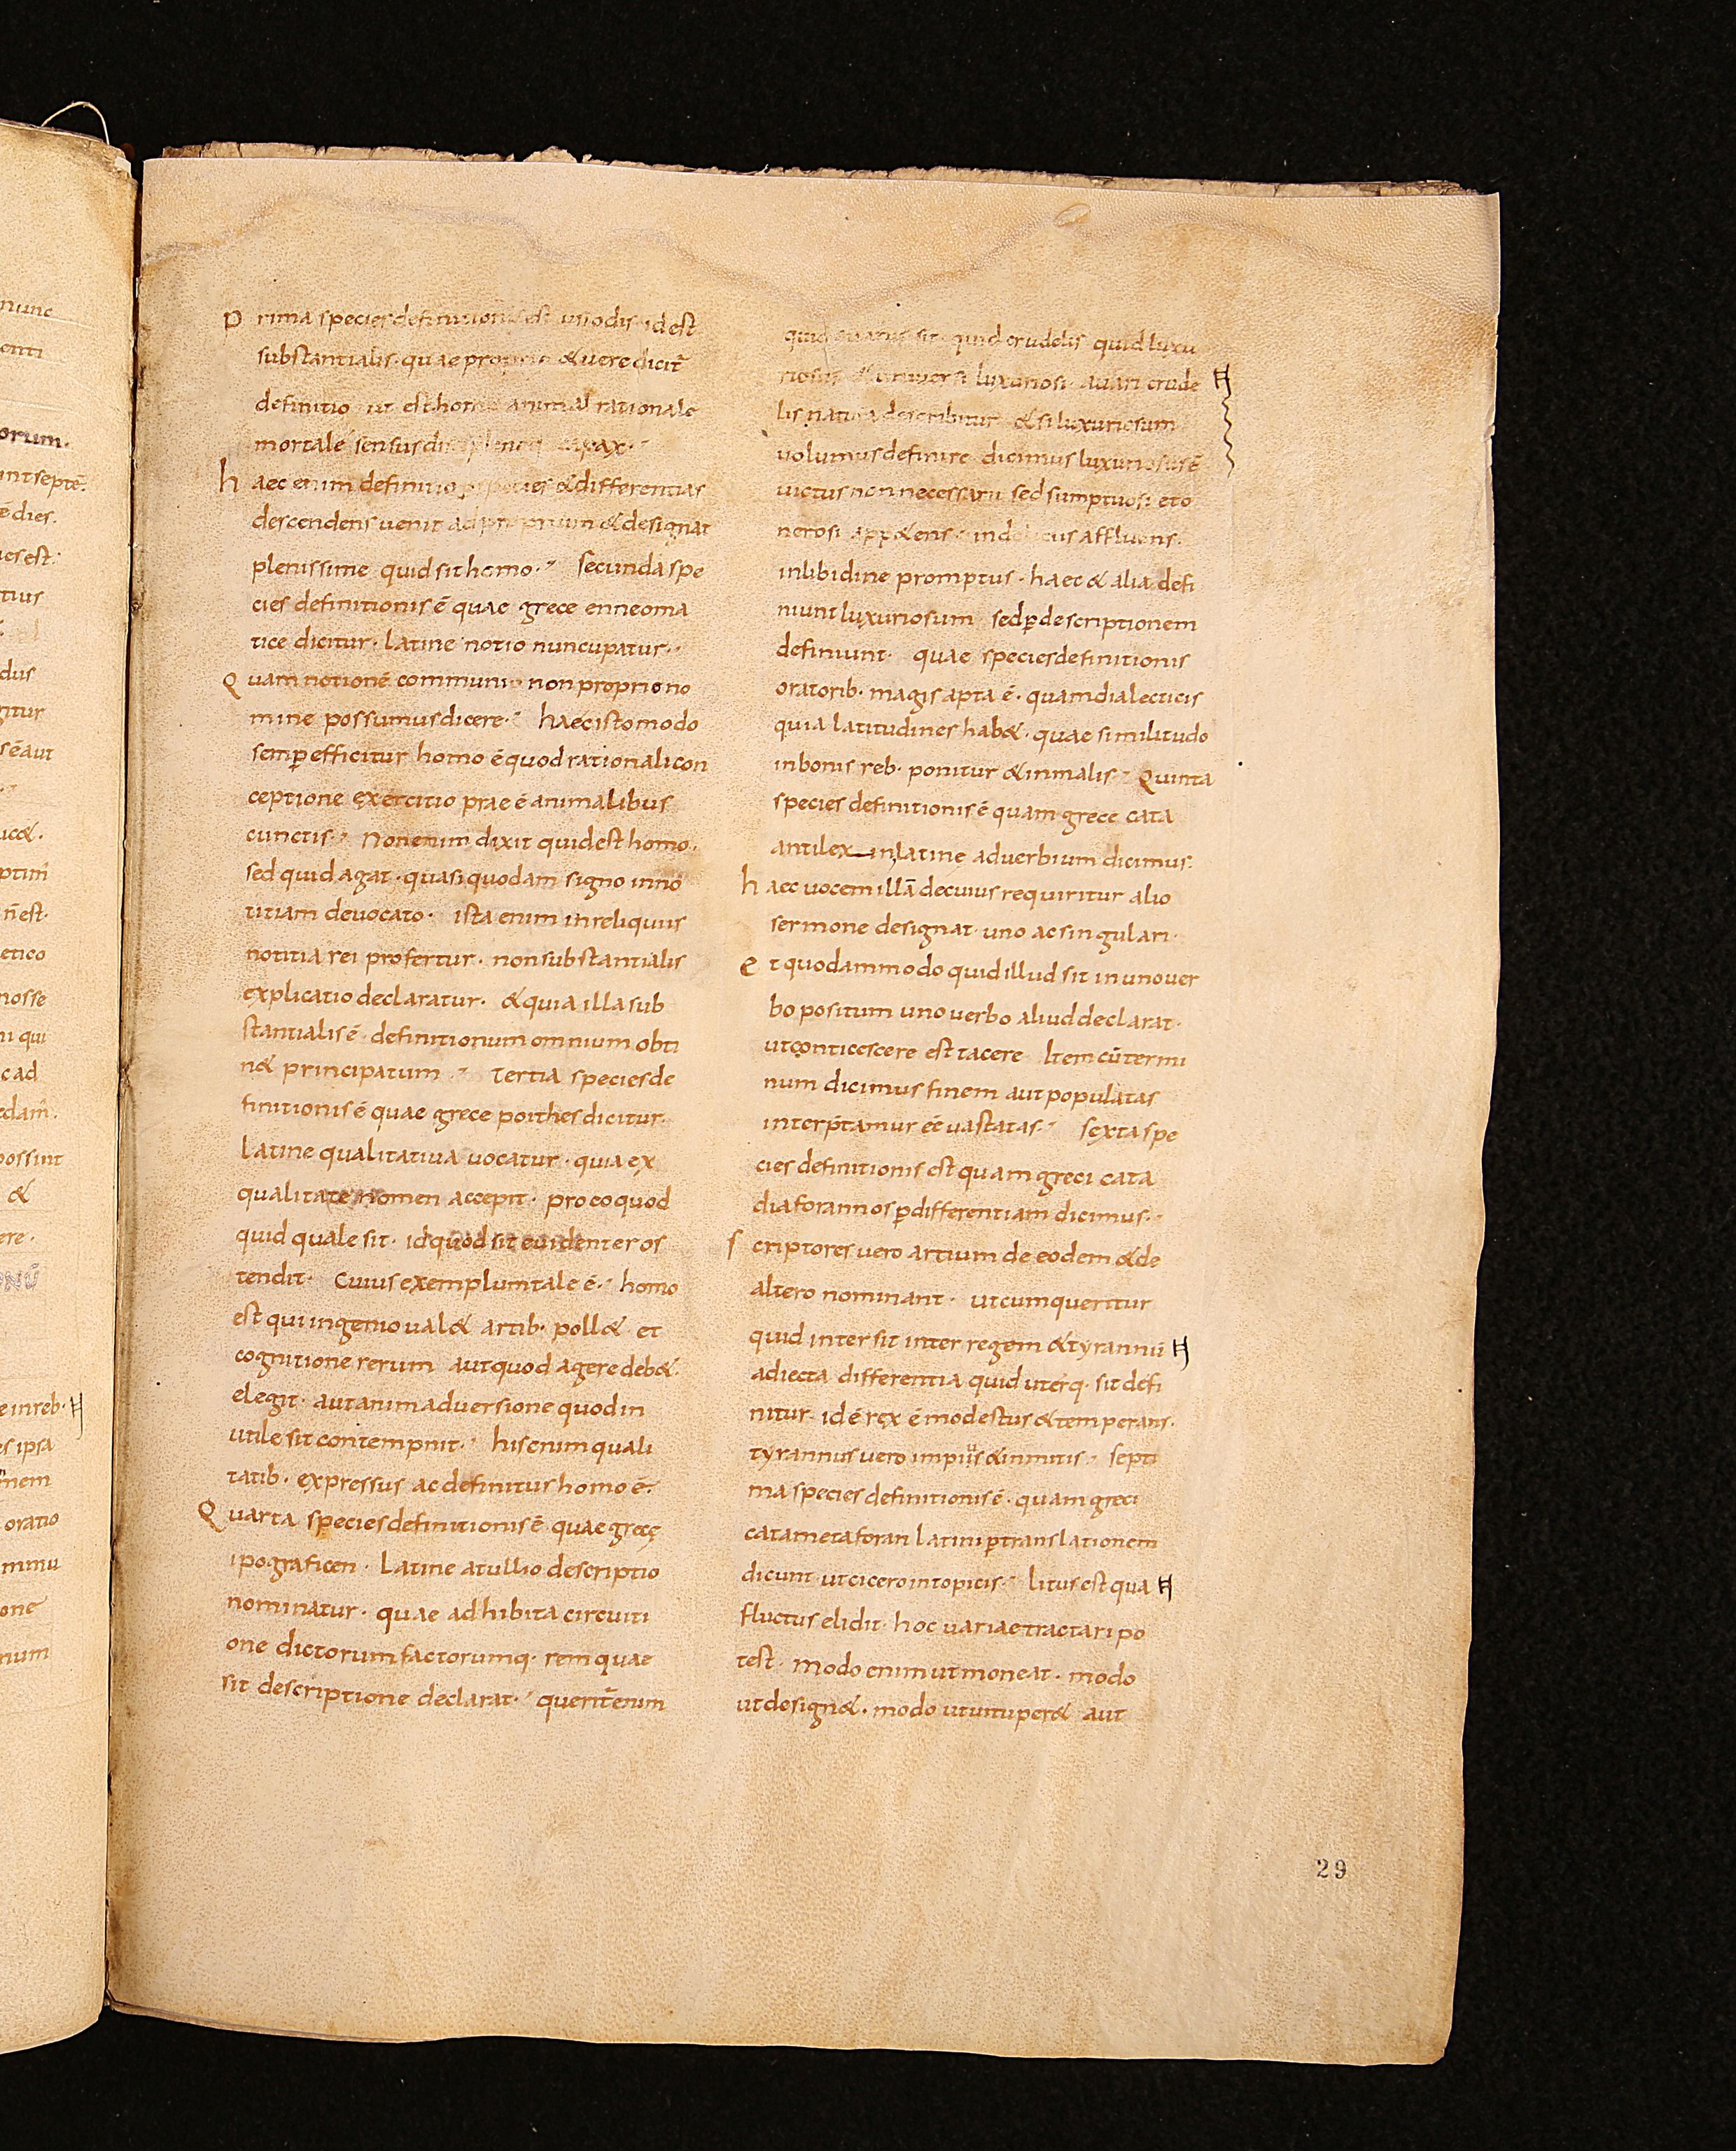 nunc
enti
orum.
unt septē.
ē dies.
est.
tius
dus
gitur
sē aut
ptim̄
n̄ est.
etico
nosse
ni qui
c ad
edam̄.
possint
&
ere.
e in reb.
es ipsa
nem
oratio
mmu
one
num
Prima species definitionis est usiodis id est
substantialis. quae proprie & vere dicit̄
definitio ut est homo animal rationale
mortale sensus disciplineq. capax.
haec enim definitio p species & differentias
descendens uenit ad proprium & designat
plenissime quid sit homo. Secunda spe
cies definitionis ē quae grece enneoma
tice dicitur. Latine notio nuncupatur.
Quam notionē communi non proprio no
mine possumus dicere. haec isto modo
semp efficitur homo ē quod rationali con
ceptione exercitio prae ē animalibus
cunctis. Non enim dixit quid est homo.
sed quid agat. quasi quodam signo in no
titiam devocato. ista enim in reliquiis
notitia rei profertur. non substantialis
explicatio declaratur. & quia illa sub
stantialis ē definitionum omnium obti
n& principatum. Tertia species de
finitionis ē quae grece poithes dicitur.
Latine qualitativa uocatur. quia ex
qualitate nomen accepit. pro eo quod
quid quale sit. id quod sit euidenter os
tendit. Cuius exemplum tale ē. homo
est qui ingenio ual& artib. poll& et
cognitione rerum aut quod agere deb&.
elegit. aut animaduersione quod in
utile sit contempnit. his enim quali
tatib. expressus ac definitus homo ē.
Quarta species definitionis ē quae grecę
ipograficen. Latine a tullio descriptio
nominatur. quae adhibita circuiti
one dictorum factorumq. rem quae
sit descriptione declarat. querit̄ enim
quid auarus sit. quid crudelis quid luxu
riosus & uniuersi luxuriosi. auari crude
lis natura describitur & si luxuriosum
uolumus definire dicimus luxuriosus ē
uictus non necessarii sed sumptuosi et o
nerosi app&ens. in deliciis affluens.
in libidine promptus. haec & alia defi
niunt luxuriosum sed p descriptionem
definiunt. quae species definitionis
oratorib. magis apta ē. quam dialecticis
quia latitudines hab&. quae similitudo
in bonis reb. ponitur & in malis. Quinta
species definitionis ē quam grece cata
antilex in latine aduerbium dicimus.
haec uocem illā de cuius requiritur alio
sermone designat uno ac singulari.
et quodammodo quid illud sit in uno uer
bo positum uno uerbo aliud declarat.
ut conticescere est tacere Item cū termi
num dicimus finem aut populatas
interp̄tamur eē uastatas. Sexta spe
cies definitionis est quam greci cata
diaforan nos p differentiam dicimus.
Scriptores uero artium de eodem & de
altero nominant. ut cum queritur
quid intersit inter regem & tyrannū
adiecta differentia quid uterq. sit defi
nitur. id ē rex ē modestus & temperans.
tyrannus uero impius & inmitis. Septi
ma species definitionis ē. quam greci
catametaforan Latini p translationem
dicunt ut cicero in topicis. Litus est qua
fluctus elidit. hoc uariae tractari po
test. Modo enim ut moneat. modo
ut design&. modo ut uituper& aut
29